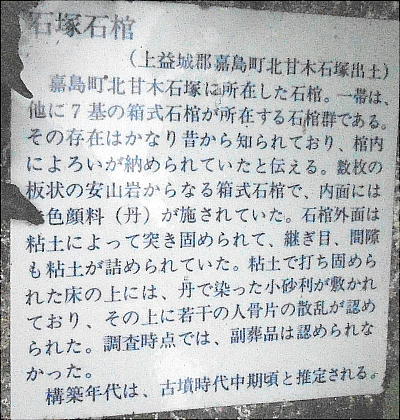 石塚石棺
(上益城郡嘉島町北甘木石塚出土)
嘉島町北甘木石塚に所在した石棺。一帯は、
他に7基の箱式石棺が所在する石棺群である。
その存在はかなり昔から知られており、棺内
によろいが納められていたと伝える。数枚の
板状の安山岩からなる箱式石棺で、内面には
色顔料(丹)が施されていた。石棺外面は
粘土によって突き固められて、継ぎ目、間隙
も粘土が詰められていた。粘土で打ち固めら
れた床の上には、丹で染った小砂利が敷かれ
ており、その上に若干の人骨片の散乱が認め
られた。調査時点では、副葬品は認められな
かった。
構築年代は、古墳時代中期頃と推定される。